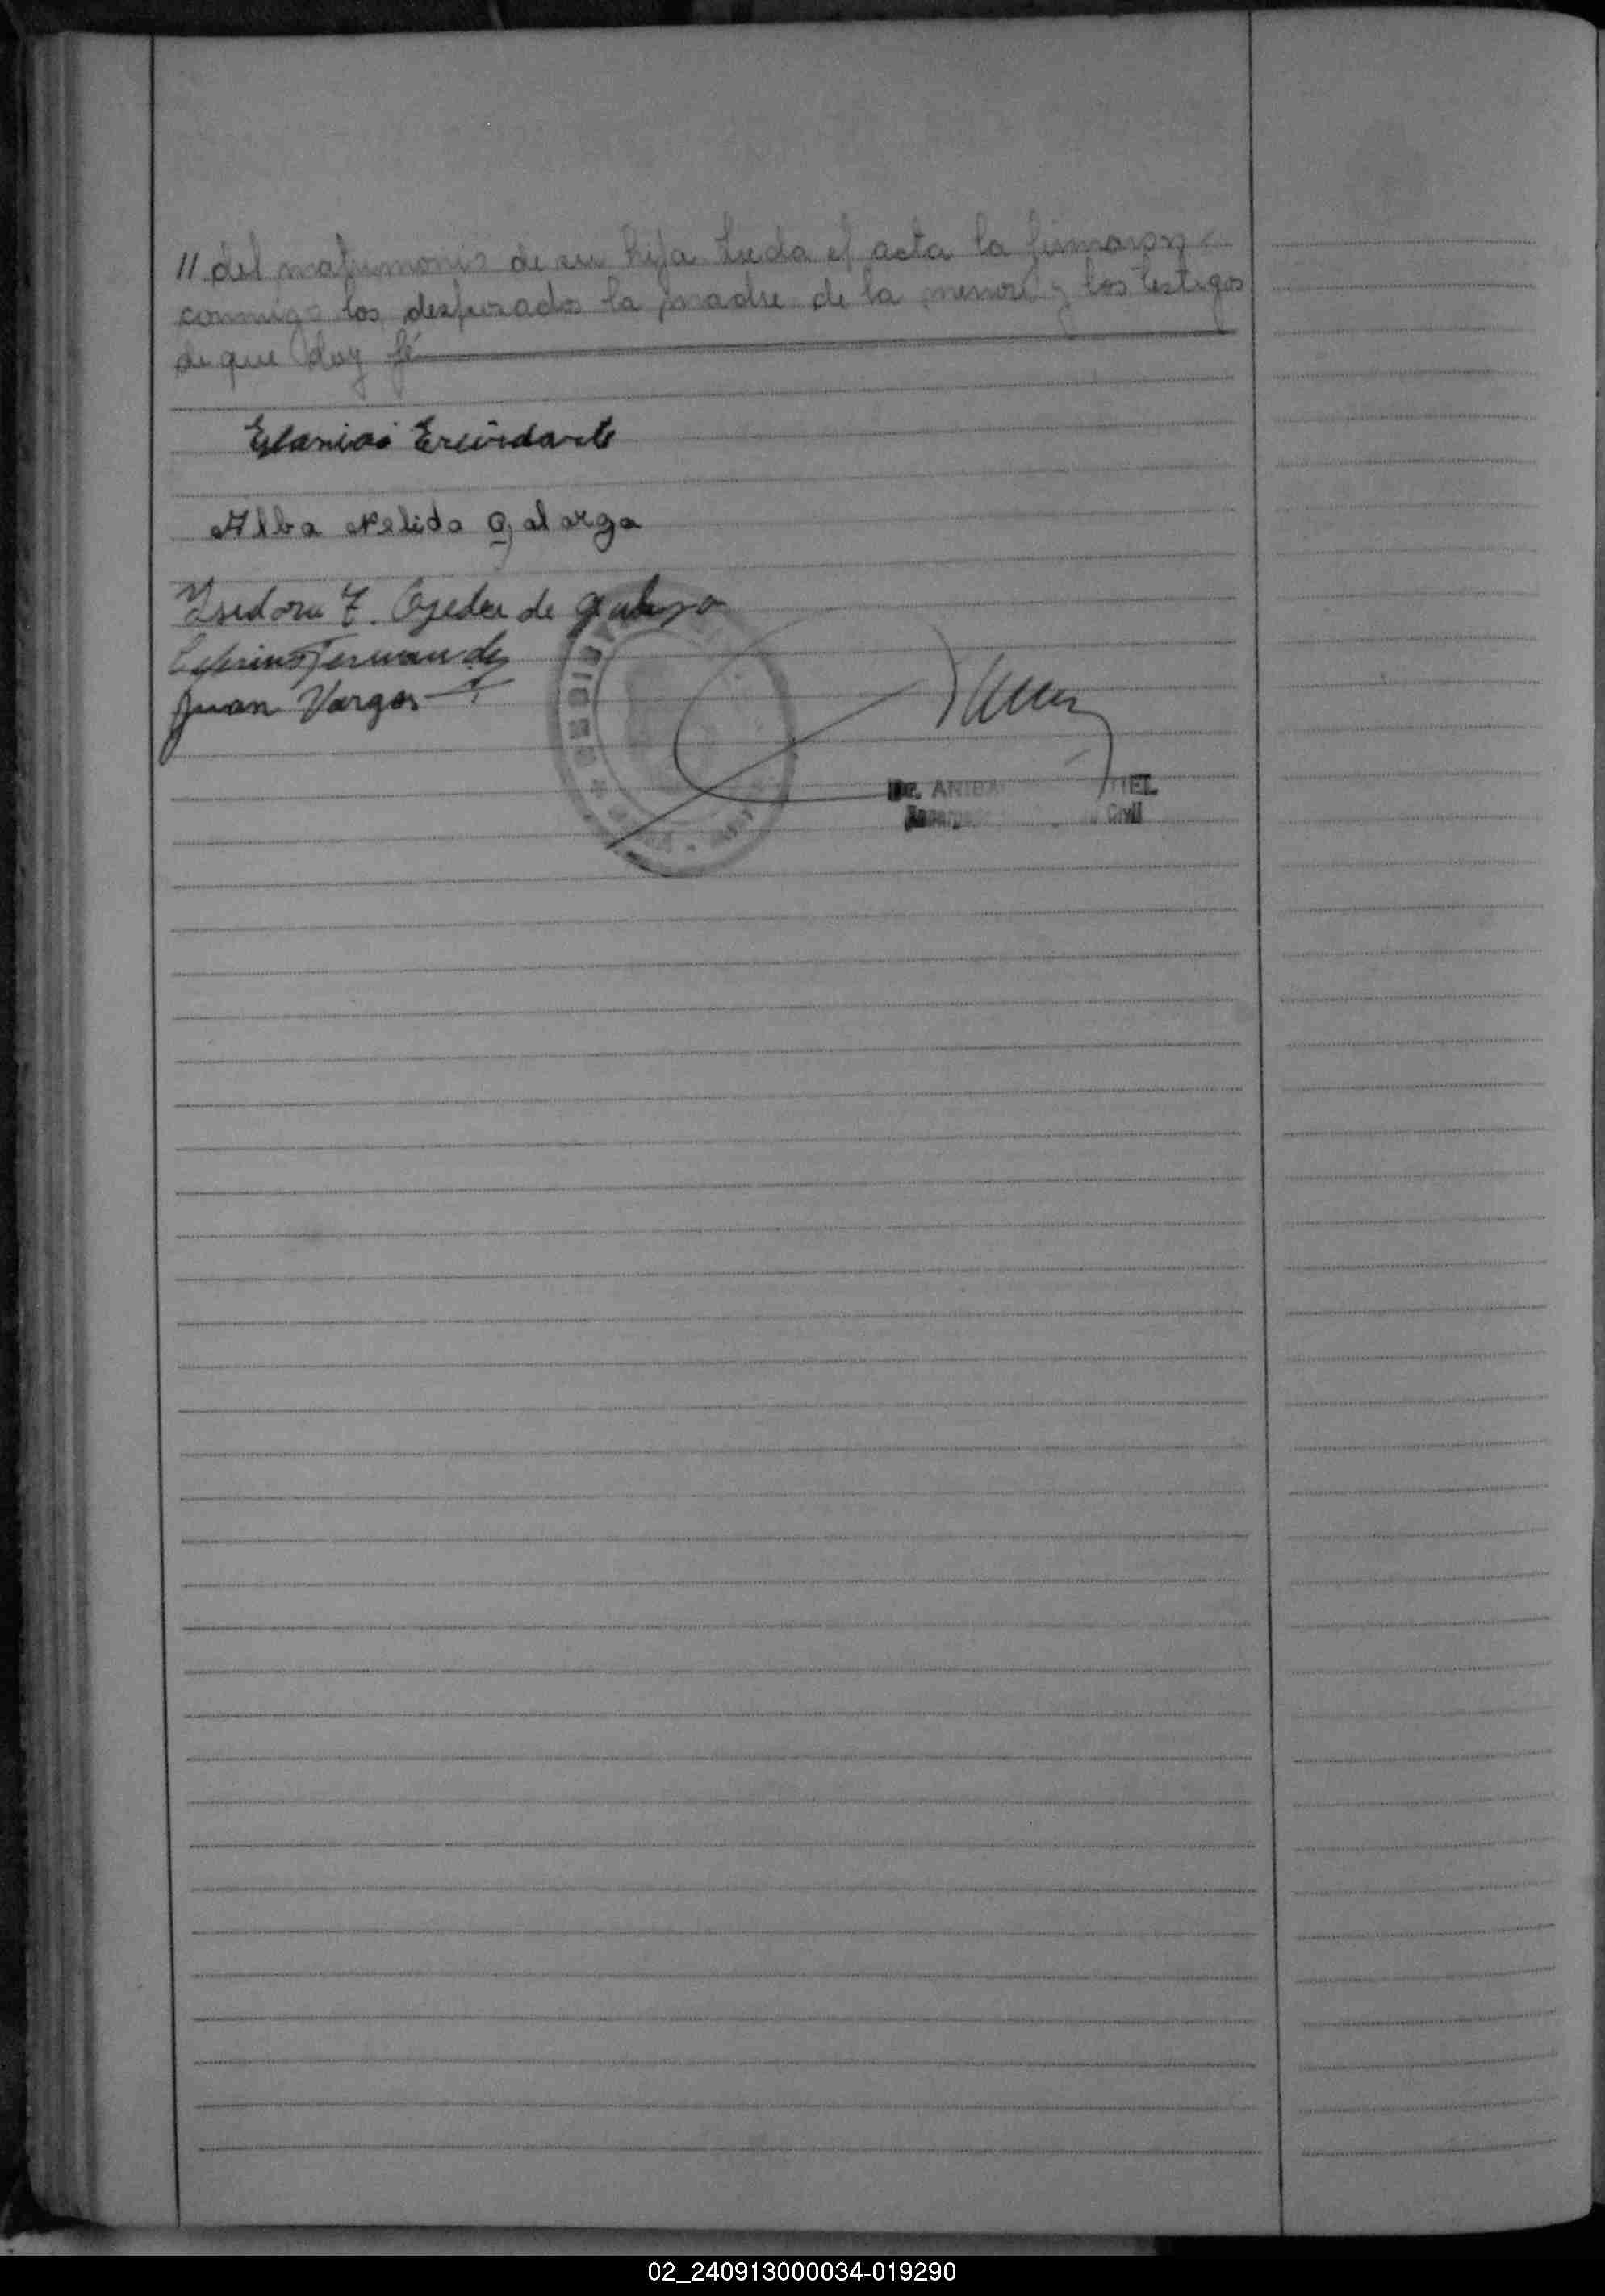 // del matrimonio de su hija Leida el acta la firmaron
conmigo los desposados la madre de la menor y los testigos
de que doy fé
Alba Nelida Galarga
Isidora F. Ojeda de
Fernandez
Juan Vargas
Dr. ANIBA
Civil
02_240913000034-019290